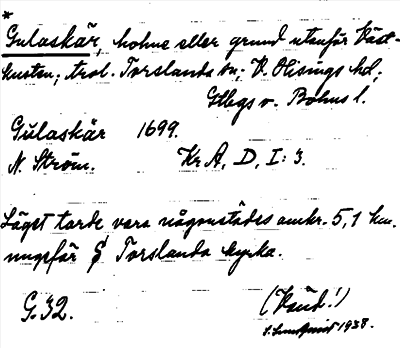 *
Gulaskär, holme eller grund utanför Väst-
kusten; trol. Torslanda sn; V. Hisings hd,
Gtbgs o. Bohus l.
Gulaskär 1699.
N. Ström. Kr A, D, I: 3.
Läget torde vara någonstädes omkr. 5,1 km.
ungefär S Torslanda kyrka.
G. 32. (Känd!)
S. Lundquist 1938.